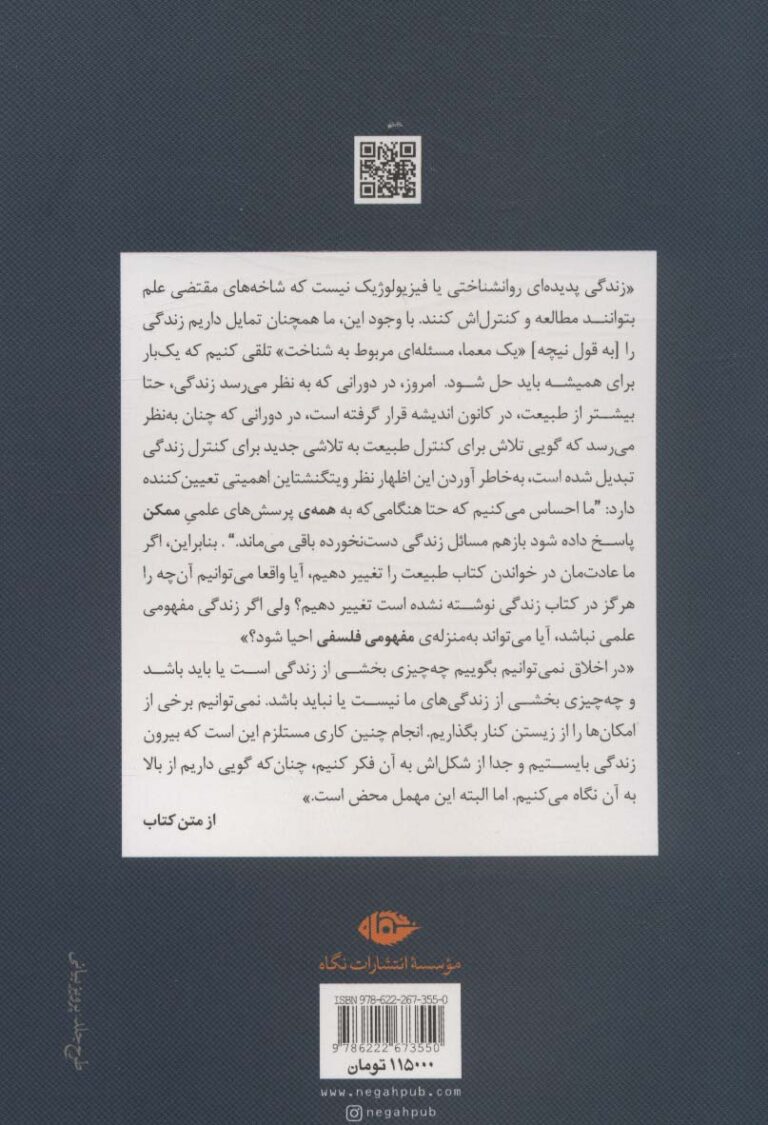 «زندگی پدیده‌ای روانشناختی یا فیزیولوژیک نیست که شاخه‌های مقتضی علم
بتوانند مطالعه و کنترل‌اش کنند. با وجود این، ما همچنان تمایل داریم زندگی
را [به قول نیچه] «یک معما، مسئله‌ای مربوط به شناخت» تلقی کنیم که یک‌بار
برای همیشه باید حل شود. امروز، در دورانی که به نظر می‌رسد زندگی، حتا
بیشتر از طبیعت، در کانون اندیشه قرار گرفته است، در دورانی که چنان به‌نظر
می‌رسد که گویی تلاش برای کنترل طبیعت به تلاشی جدید برای کنترل زندگی
تبدیل شده است، به‌خاطر آوردن این اظهار نظر ویتگنشتاین اهمیتی تعیین‌کننده
دارد: "ما احساس می‌کنیم که حتا هنگامی‌که به همه‌ی پرسش‌های علمیِ ممکن
پاسخ داده شود بازهم مسائل زندگی دست‌نخورده باقی می‌ماند.“ . بنابراین، اگر
ما عادت‌مان در خواندن کتاب طبیعت را تغییر دهیم، آیا واقعا می‌توانیم آن‌چه را
هرگز در کتاب زندگی نوشته نشده است تغییر دهیم؟ ولی اگر زندگی مفهومی
علمی نباشد، آیا می‌تواند به‌منزله‌ی مفهومی فلسفی احیا شود؟»
«در اخلاق نمی‌توانیم بگوییم چه‌چیزی بخشی از زندگی است یا باید باشد
و چه‌چیزی بخشی از زندگی‌های ما نیست یا نباید باشد. نمی‌توانیم برخی از
امکان‌ها را از زیستن کنار بگذاریم. انجام چنین کاری مستلزم این است که بیرون
زندگی بایستیم و جدا از شکل‌اش به آن فکر کنیم، چنان‌که گویی داریم از بالا
به آن نگاه می‌کنیم. اما البته این مهمل محض است.»
از متن کتاب
مؤسسهٔ انتشارات نگاه
ISBN 978-622-267-355-0
9 786222 673550
۱۱۵۰۰۰ تومان
www.negahpub.com
negahpub
طرح جلد: پرویز بیانی